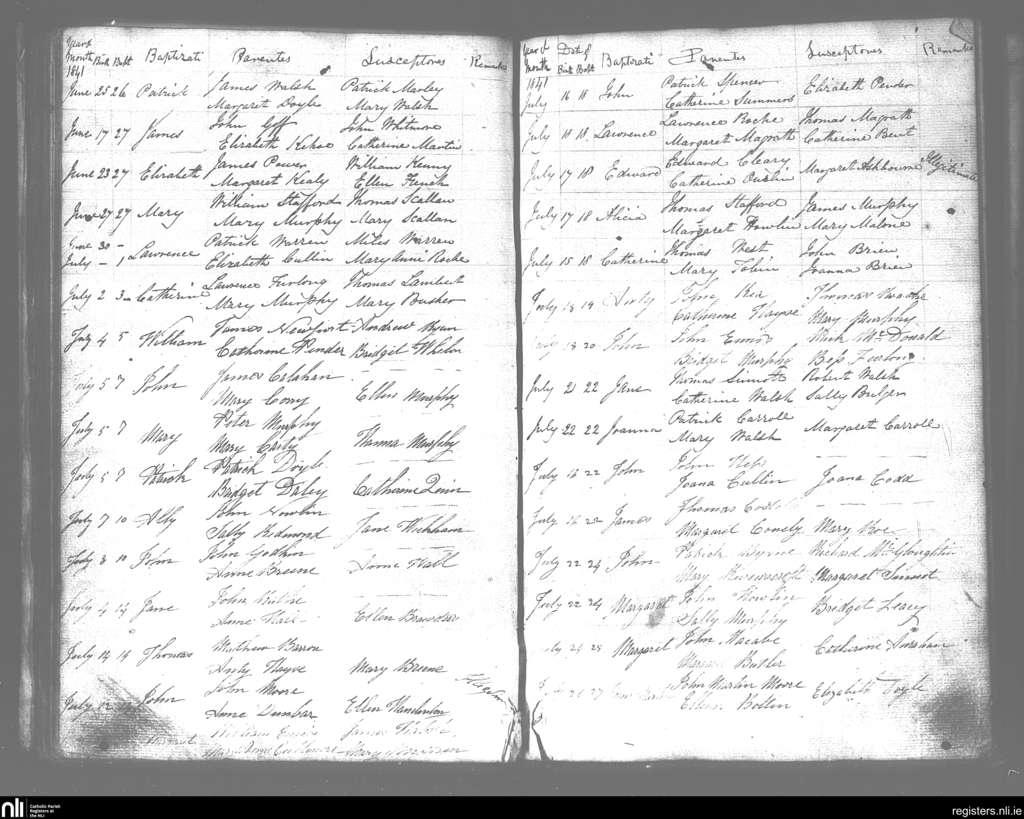 Year &
Month Birth Bapt Baptizati Parentes Susceptores Remarks
1841
June 25 26 Patrick James Walsh Patrick Marley
Margaret Doyle Mary Walsh
June 17 27 James John Eff John Whitmore
Elizabeth Kehoe Catherine Martin
June 23 27 Elizabeth James Power William Kenny
Margaret Kealy Ellen French
June 27 27 Mary William Stafford Thomas Scallan
Mary Murphy Mary Scallan
June 30 - Patrick Warren Miles Warren
July - 1 Lawrence Elizabeth Cullin Mary Anne Roche
July 2 3 Catherine Lawrence Furlong Thomas Lambert
Mary Murphy Mary Busher
July 4 5 William James Newport Andrew Ryan
Catherine Pender Bridget Whelan
July 5 7 John James Calahan
Mary Cony Ellen Murphy
July 5 7 Mary Peter Murphy
Mary Carty Thomas Murphy
July 5 7 Patrick Patrick Doyle
Bridget Daley Catherine Quin
July 7 10 Ally John Nowlan
Sally Redmond Jane Wickham
July 8 10 John John Godkin
Anne Breene Anne Hall
July 4 14 Jane John
Anne Ellen
July 14 14 Thomas Mathew Barron
Anty Hayse Mary Breene
July 12 John John Moore
Anne Dunbar Ellen
Margaret James
Mary Anne Mary
Year & Date of
Month Birth Bapt Baptizati Parentes Susceptores Remarks
1841
July 16 18 John Patrick Spencer Elizabeth Pender
Catherine Summers
July 18 18 Lawrence Lawrence Roche Thomas Magrath
Margaret Magrath Catherine Bent
July 17 18 Edward Edward Cleary Margaret Ashbourne Illegitimate
Catherine
July 17 18 Alicia Thomas Stafford James Murphy
Margaret Howlin Mary Malone
July 15 18 Catherine Thomas West John Brien
Mary Tobin Joanna Brien
July 18 19 Anty John Rea Thomas
Catherine Hayse Mary Murphy
July 18 20 John John Ennis Mich Mc Donald
Bridget Murphy Bess Furlong
July 21 22 Jane Thomas Sinnott Robert Walsh
Catherine Walsh Sally Bulger
July 22 22 Joanna Patrick Carroll Margaret Carroll
Mary Walsh
July 16 22 John John
Joana Cullin Joana Codd
July 16 22 James Thomas
Margaret Conely Mary Roe
July 22 24 John Patrick Byrne Michael
Mary Margaret Sinnot
July 22 24 Margaret John Howlin Bridget Leacy
Sally Murphy
24 25 Margaret John Macabe Catherine
Butler
26 27 John Martin Moore Elizabeth Doyle
Ellen Bolten
nli Catholic Parish
Registers at
the NLI
registers.nli.ie